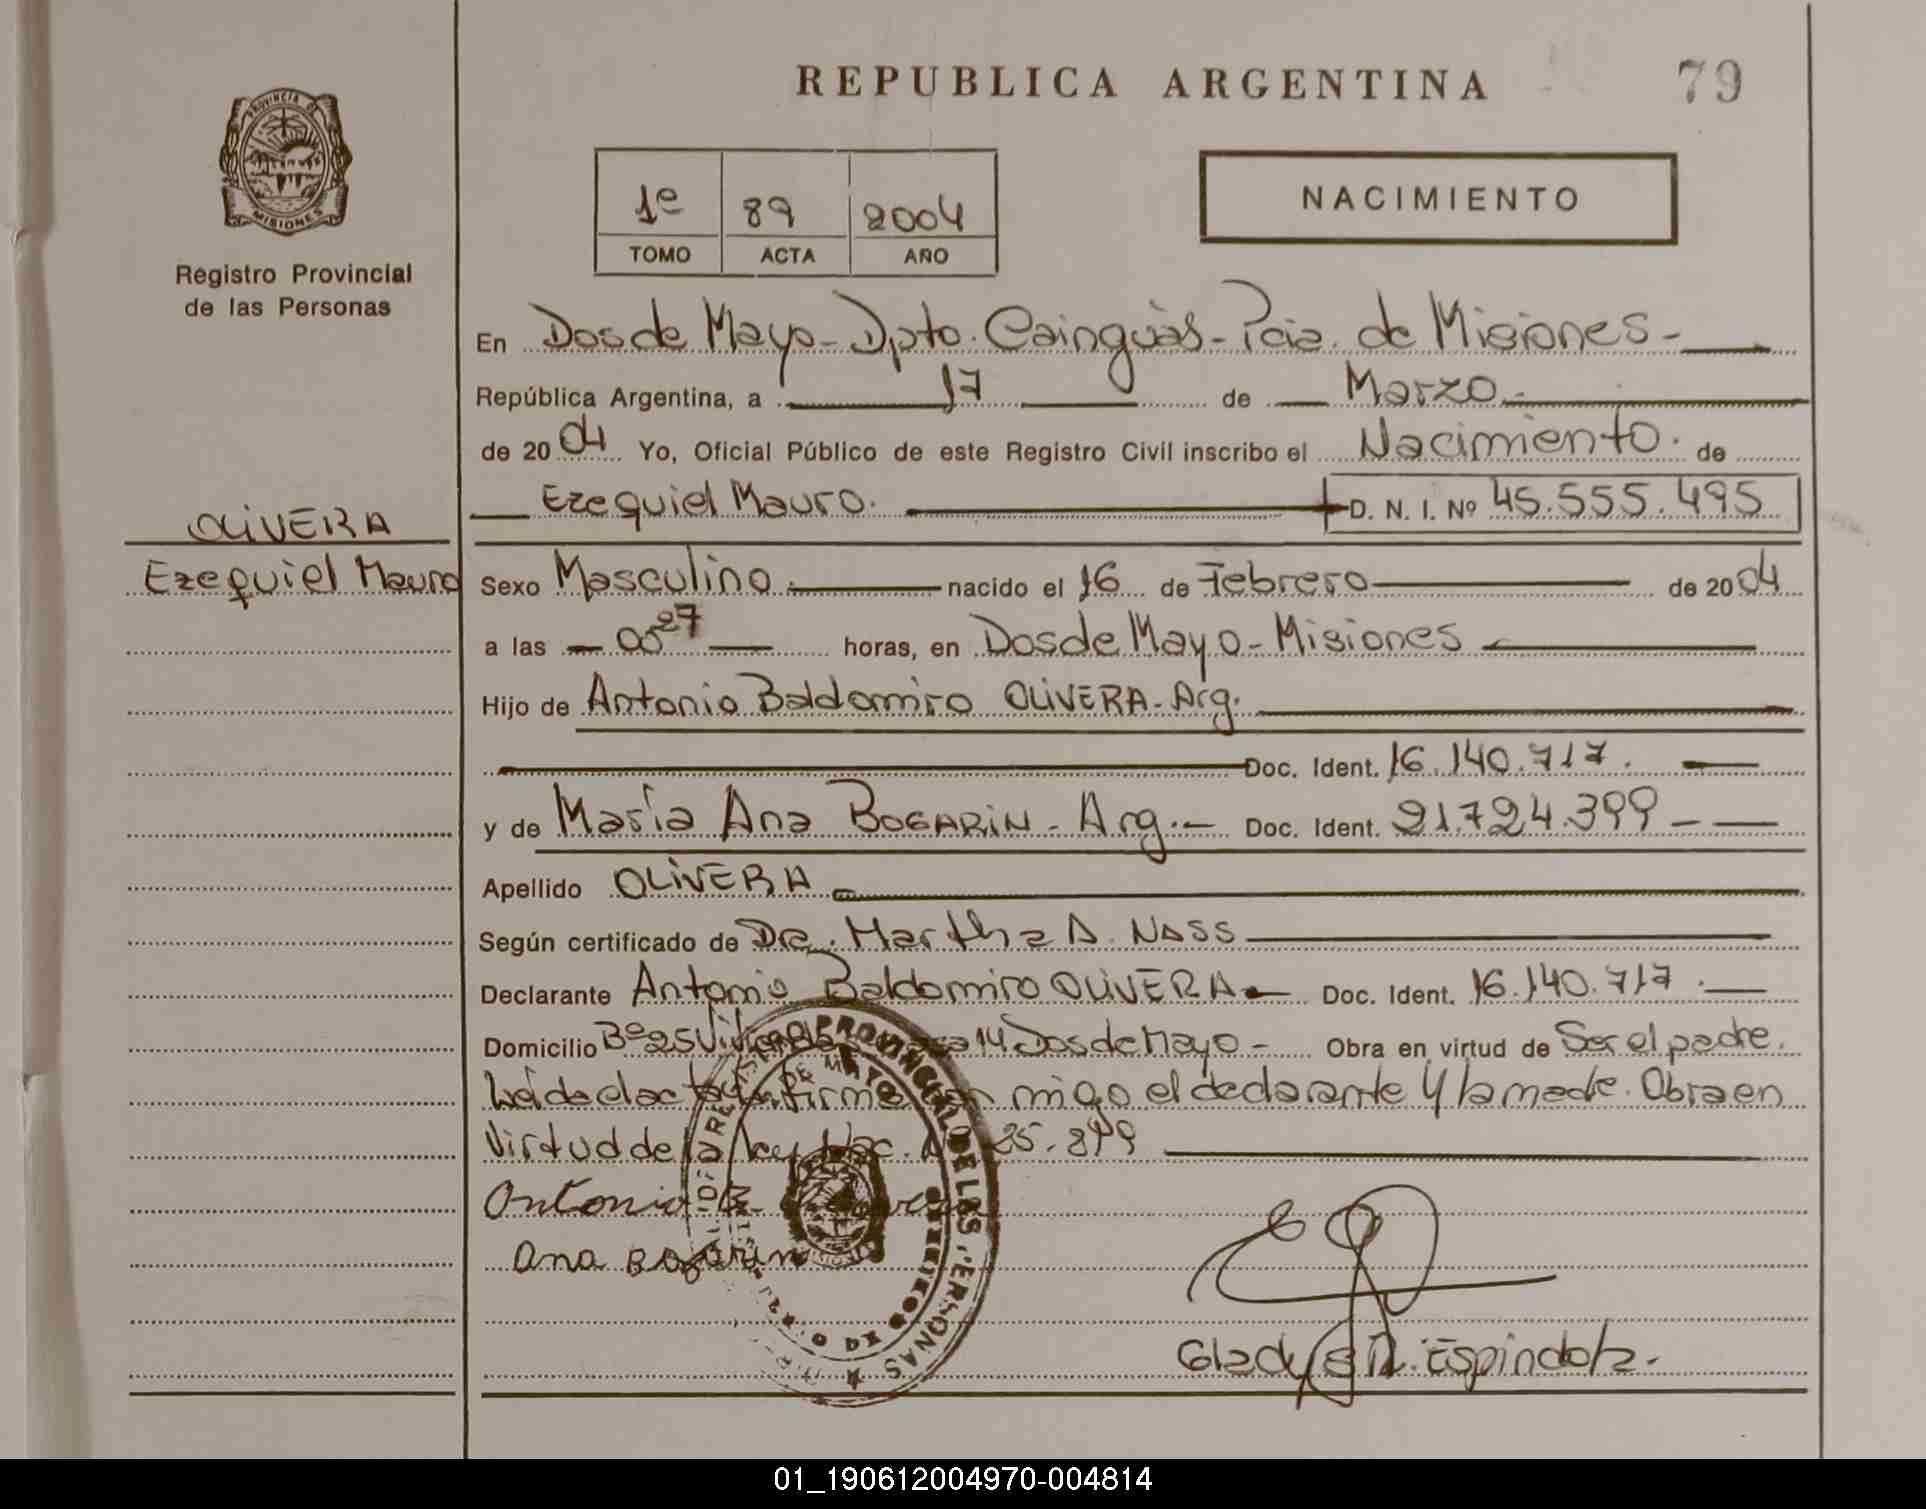 REPUBLICA ARGENTINA
79
PROVINCIA DE
MISIONES
Registro Provincial
de las Personas
1º 89 2004
TOMO ACTA AÑO
NACIMIENTO
En Dos de Mayo - Dpto. Cainguás - Pcia. de Misiones -
República Argentina, a 17 de Marzo
de 2004 Yo, Oficial Público de este Registro Civil inscribo el Nacimiento. de
Ezequiel Mauro. D. N. I. Nº 45.555.495
OLIVERA
Ezequiel Mauro
Sexo Masculino. nacido el 16 de Febrero de 2004
a las 00 27 horas, en Dos de Mayo - Misiones
Hijo de Antonio Baldomiro OLIVERA - Arg.
Doc. Ident. 16.140.717.
y de María Ana BOGARIN - Arg. - Doc. Ident. 21.724.399 -
Apellido OLIVERA
Según certificado de Dra. Martha A. NASS
Declarante Antonio Baldomiro OLIVERA - Doc. Ident. 16.140.717.
Domicilio Bº 25 Viviendas 14 Dos de Mayo - Obra en virtud de Ser el padre.
Leída el acta firma migo el declarante y la madre. Obra en
Virtud de la Ley Nac. 25.
Antonio B.
Ana Bogarin
Gladys N. Espindola.
01_190612004970-004814